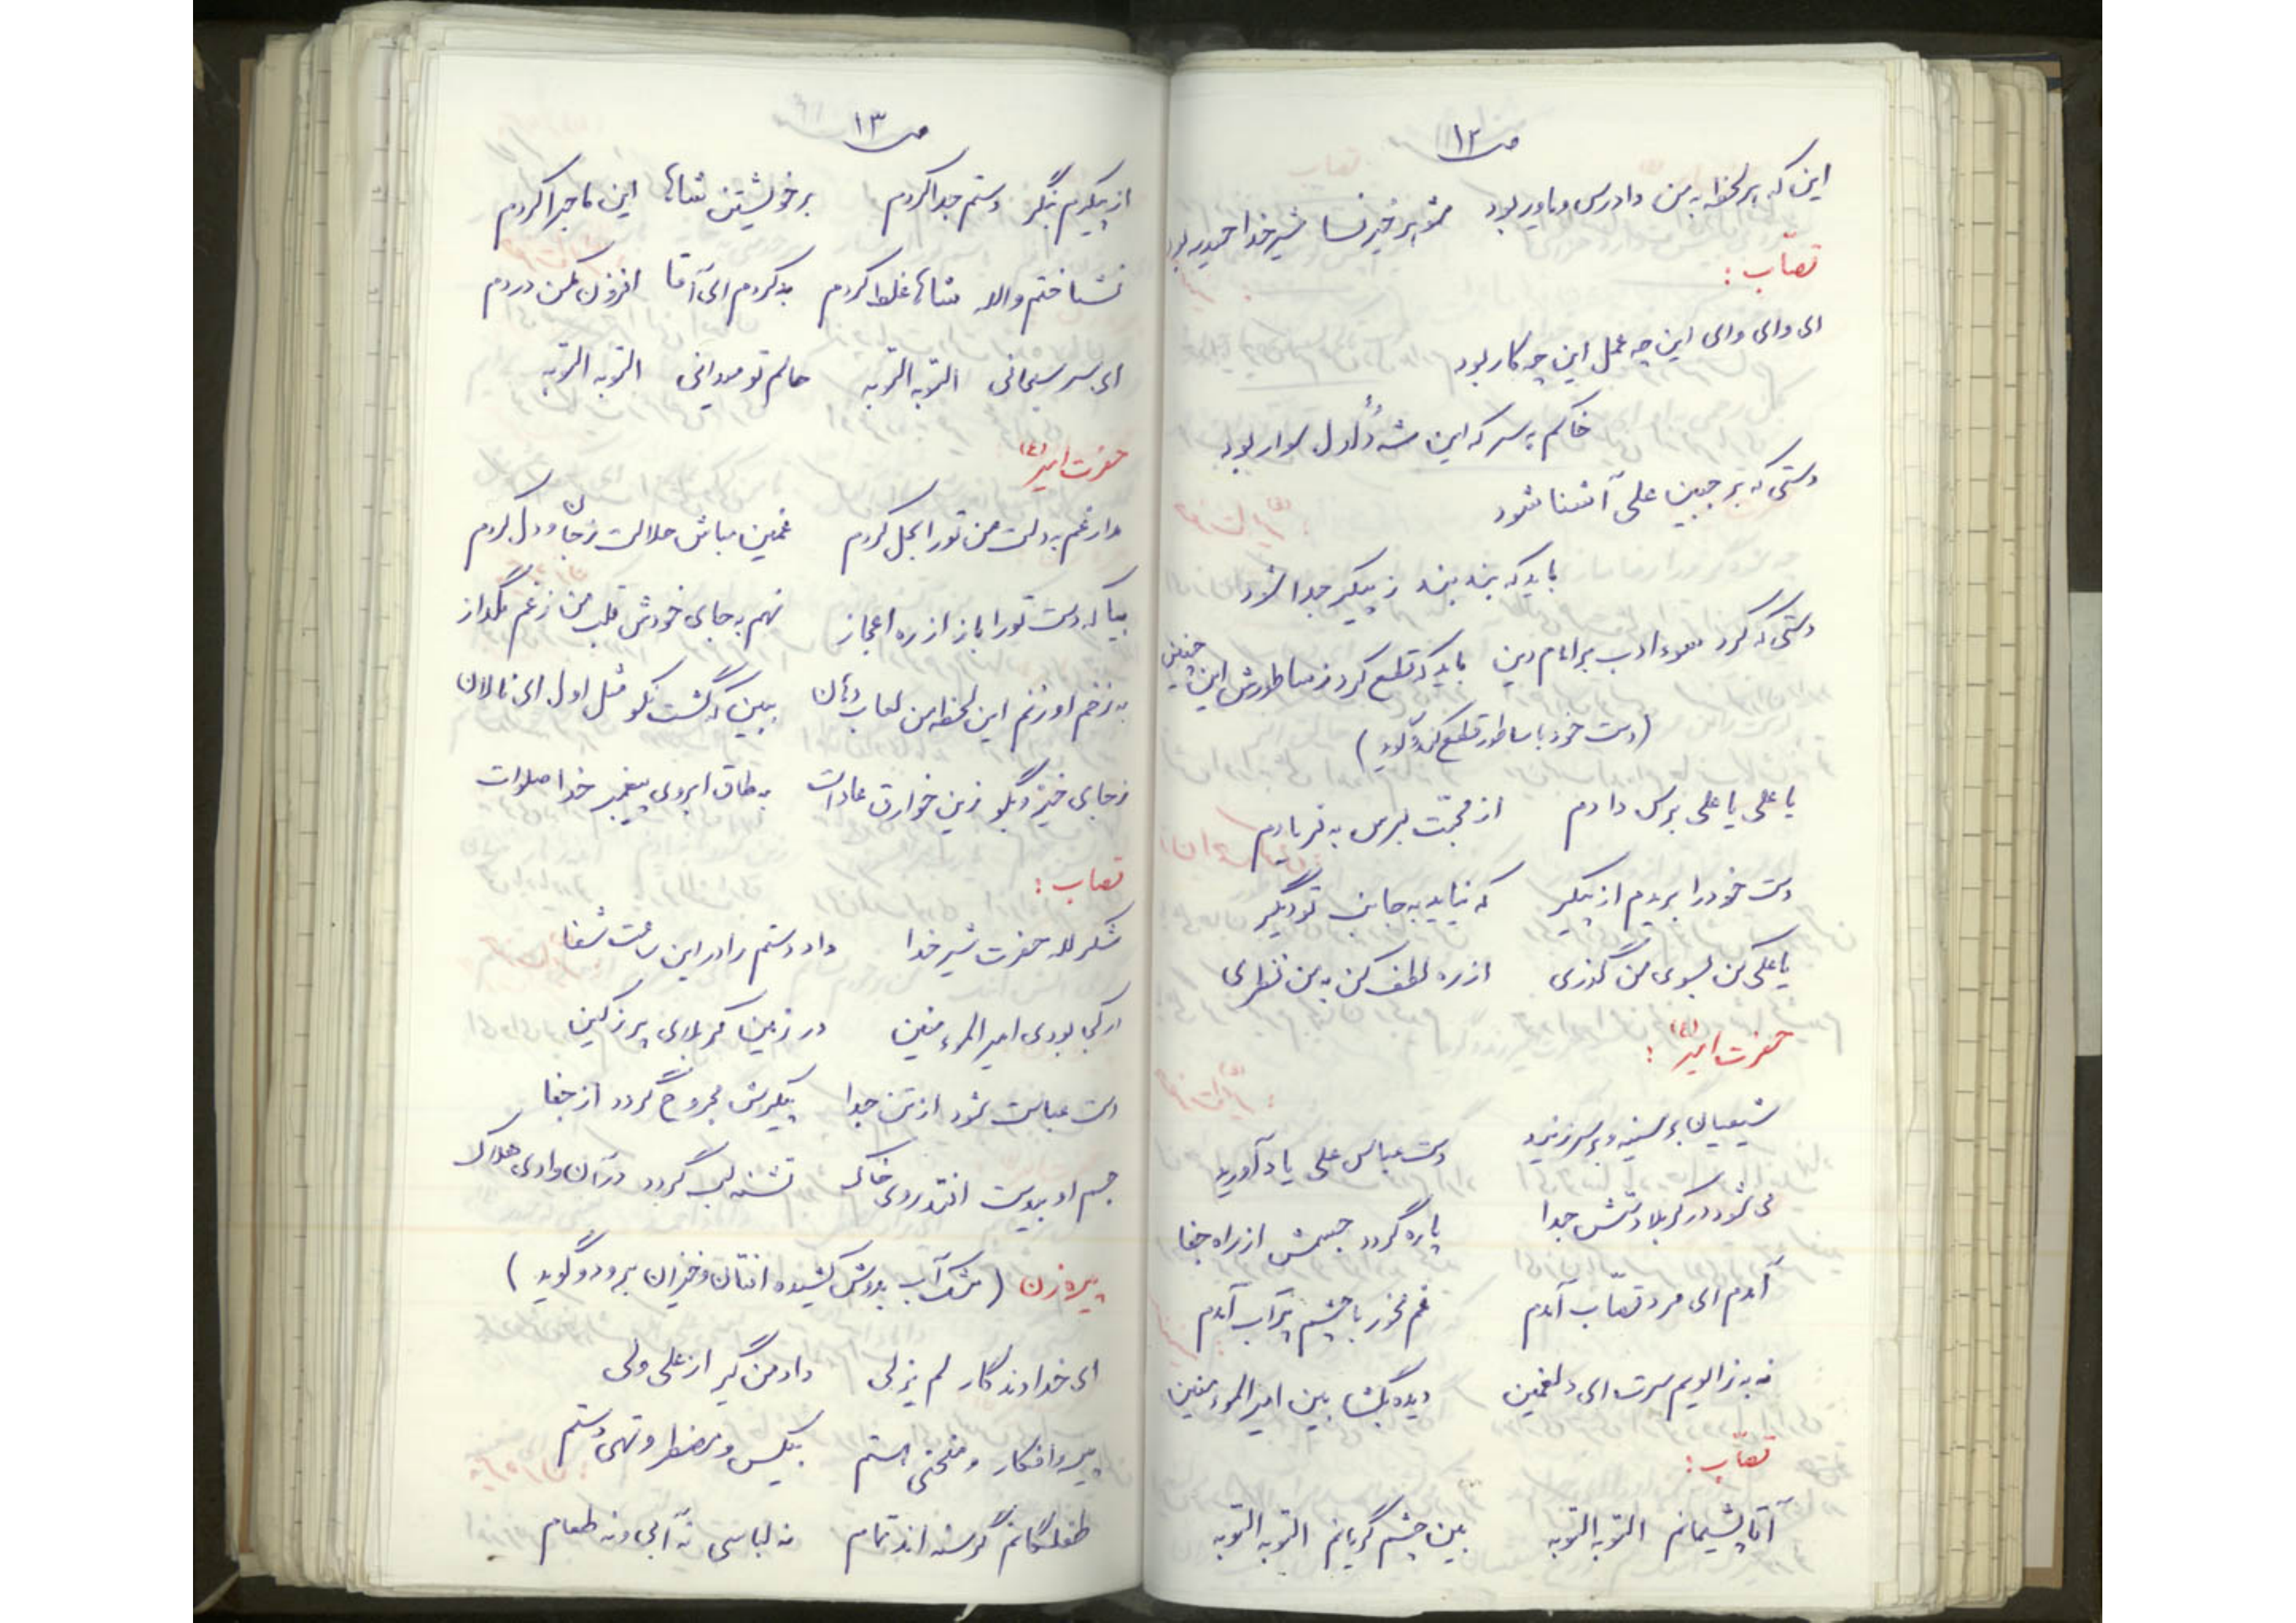 ص ۱۲
این که هر لحظه به من دادرس و یاور بود شوهر خیر نسا شیر خدا حیدر بود
قصّاب :
ای وای وای این چه عمل این چه کار بود
خاکم به سر که این شه دُلدُل سوار بود
دستی که بر جبین علی آشنا شود
باید که بند بند ز پیکر جدا شود
دستی که کرد سوء ادب بر امام دین باید که قطع کرد ز ساطورش این چنین
(دست خود با ساطور قطع کند و گوید )
یا علی یا علی برس دادم از محبّت برس به فریادم
دست خود را بریدم از پیکر که نیاید به جانب تو دیگر
یا علی کن بسوی من گذری از ره لطف کن به من نظری
حضرت امیر (ع) :
شیعیان بر سینه و بر سر زنید دست عباس علی یاد آورید
می شود در کربلا دستش جدا پاره گردد جسمش از راه جفا
آمدم ای مرد قصّاب آمدم غم مخور با چشم پر آب آمدم
نه به زانویم سرت ای دلغمین دیده بگشا بین امیرالمؤمنین
قصّاب :
آقا پشیمانم التوبه التوبه بین چشم گریانم التوبه التوبه
ص ۱۳
از پیکرم بنگر دستم جدا کردم بر خویشتن شاها این ماجرا کردم
نشناختم والله شاها غلط کردم بد کردم ای آقا افزون مکن دردم
ای سر سبحانی التوبه التوبه حالم تو میدانی التوبه التوبه
حضرت امیر (ع)
مدار غم به دلت من تو را بحل کردم غمین مباش حلالت ز جان و دل کردم
بیا که دست تو را باز از ره اعجاز نهم به جای خودش قلب من ز غم مگداز
به زخم او زنم این لحظه من لعاب دهان ببین که گشت نکو مثل اول ای نالان
ز جای خیز و بگو زین خوارق عادات به طاق ابروی پیغمبر خدا صلوات
قصاب :
شکر لله حضرت شیر خدا داد دستم را در این ساعت شفا
در کجا بودی امیرالمؤمنین در زمین کربلای پر ز کین
دست عباست شود از تن جدا پیکرش مجروح گردد از جفا
جسم او بی دست افتد روی خاک تشنه لب گردد در آن وادی هلاک
پیره زن ( مشک آب بدوش کشیده افتان و خیزان برود و گوید )
ای خداوندگار لم یزلی داد من گیر از علی ولی
پیر و افکار و منحنی هستم بیکس و مضطر و تهی دستم
طفلگانم گرسنه اند تمام نه لباسی نه آبی و نه طعام